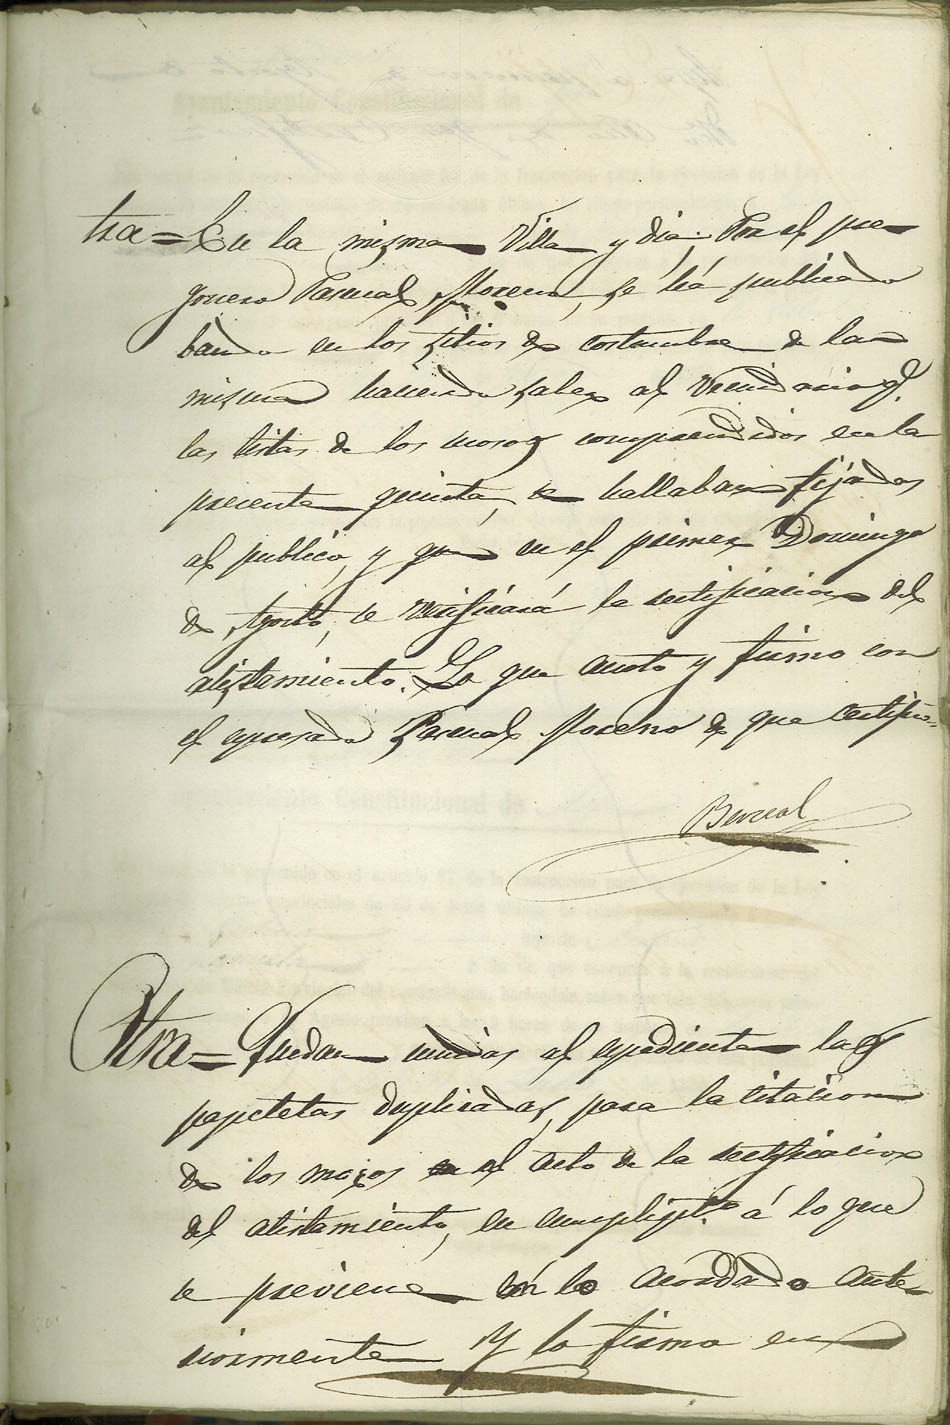 tra = En la mizma Villa y dia. Por el pre-
gonero Pascual Moreno, se há publicado
bando en los sitios de costumbre de la
mizma haciendo saber al Vecindario q.
las listas de los mozos comprendidos en la
precente quinta, se hallaban fijadas
al publico, y que en el primer Domingo
de Agosto, se verificará la rectificacion del
alistamiento. Lo que anoto y firmo con
el espresado Pascual Moreno de que certifico.
Berreal
Otra = Quedan unidas al espediente las
papeletas duplicadas, para la citacion
de los mozos al acto de la rectificacion
del alistamiento, en cumplim.to á lo que
se previene en lo acordado ante-
riormente Y lo firmo en